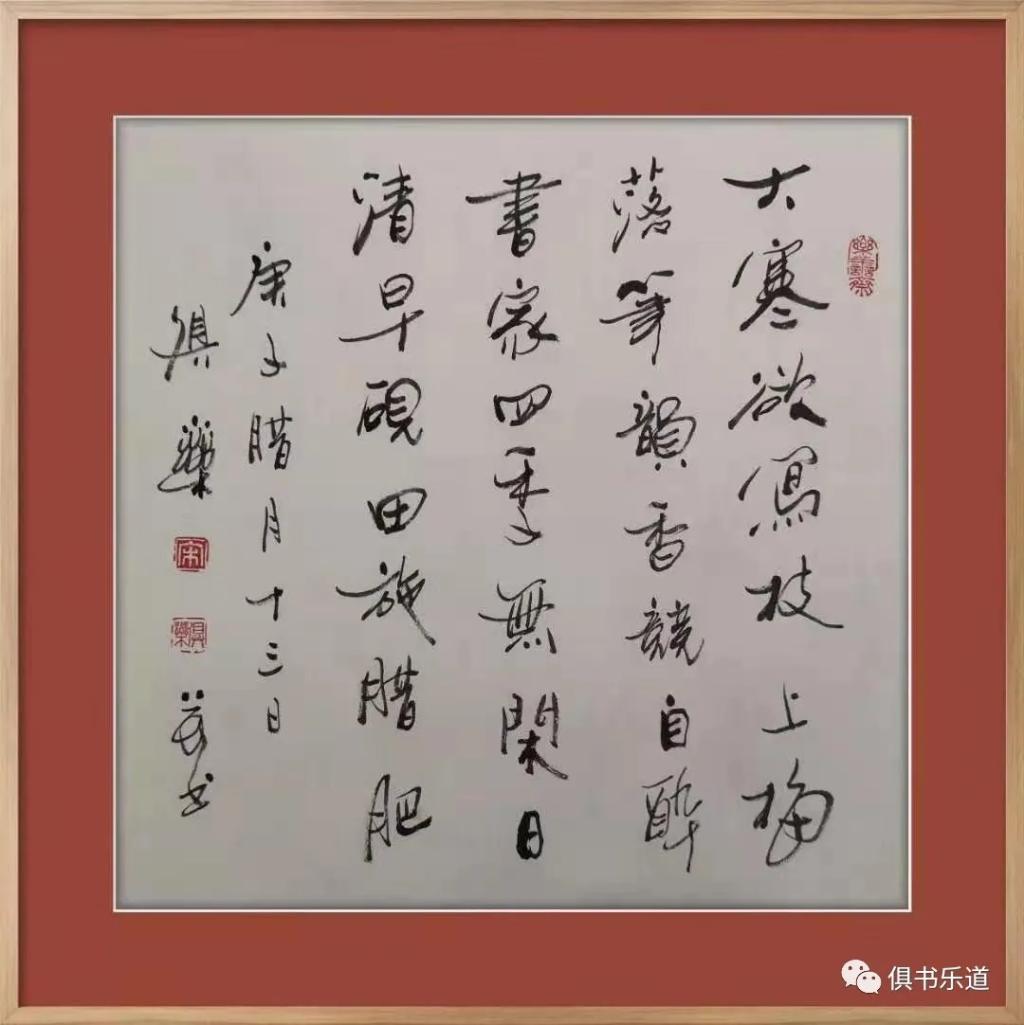 大寒欲寫枝上梅
落筆韻香競自醉
書家四季無閑日
清早硯田施腊肥
庚子腊月十三日
俱樂
宋
書
俱书乐道